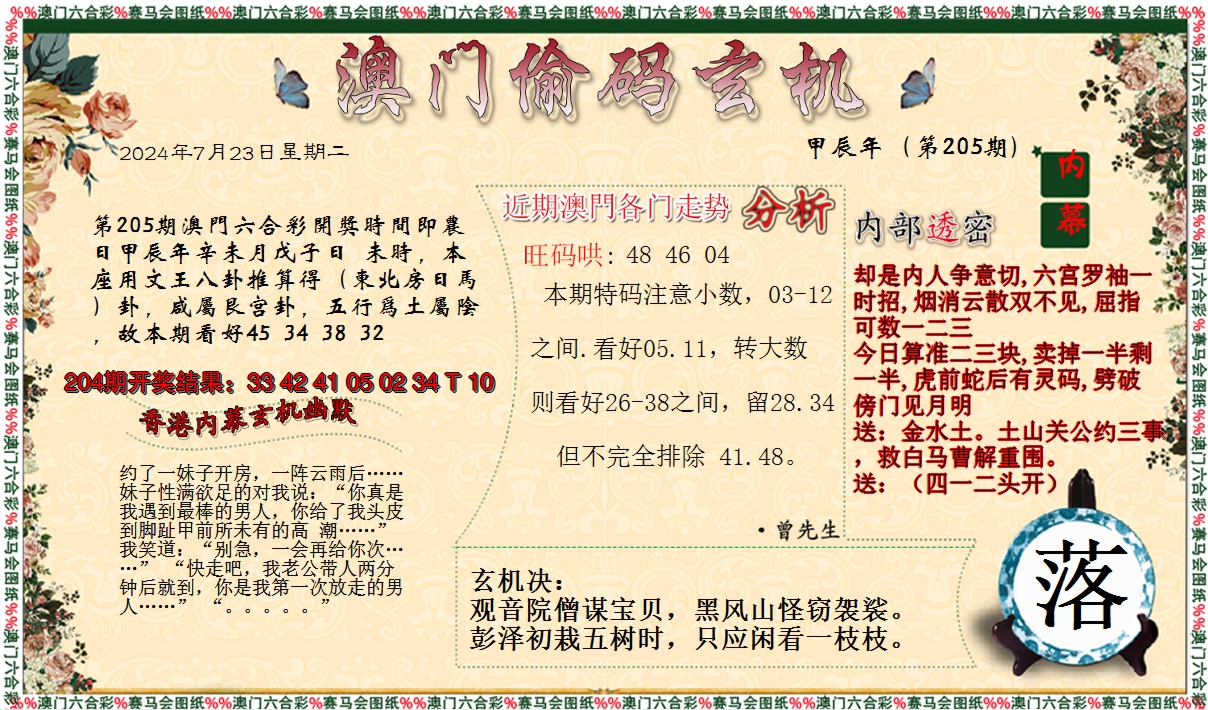 %%澳门六合彩%赛马会图纸%%澳门六合彩%赛马会图纸%%澳门六合彩%赛马会图纸%%澳门六合彩%赛马会图纸%%澳门六合彩%赛马会图纸%%澳门六合彩%赛马会图纸%%
澳门偷码玄机
2024年7月23日星期二
甲辰年 （第205期）
内幕
第205期澳門六合彩開獎時間即農
日甲辰年辛未月戊子日 未時，本
座用文王八卦推算得（東北房日馬
）卦，咸屬艮宫卦，五行爲土屬陰
，故本期看好45 34 38 32
204期开奖结果：33 42 41 05 02 34 T 10
香港内幕玄机幽默
约了一妹子开房，一阵云雨后……
妹子性满欲足的对我说：“你真是
我遇到最棒的男人，你给了我头皮
到脚趾甲前所未有的高 潮……”
我笑道：“别急，一会再给你次…
…” “快走吧，我老公带人两分
钟后就到，你是我第一次放走的男
人……” “。。。。。”
近期澳門各门走势 分析
旺码哄: 48 46 04
本期特码注意小数，03-12
之间.看好05.11，转大数
则看好26-38之间，留28.34
但不完全排除 41.48。
·曾先生
内部透密
却是内人争意切,六宫罗袖一
时招,烟消云散双不见,屈指
可数一二三
今日算准二三块,卖掉一半剩
一半,虎前蛇后有灵码,劈破
傍门见月明
送：金水土。土山关公约三事
，救白马曹解重围。
送：（四一二头开）
玄机决：
观音院僧谋宝贝，黑风山怪窃袈裟。
彭泽初栽五树时，只应闲看一枝枝。
落
%%澳门六合彩%赛马会图纸%%澳门六合彩%赛马会图纸%%澳门六合彩%赛马会图纸%%澳门六合彩%赛马会图纸%%澳门六合彩%赛马会图纸%%澳门六合彩%赛马会图纸%%